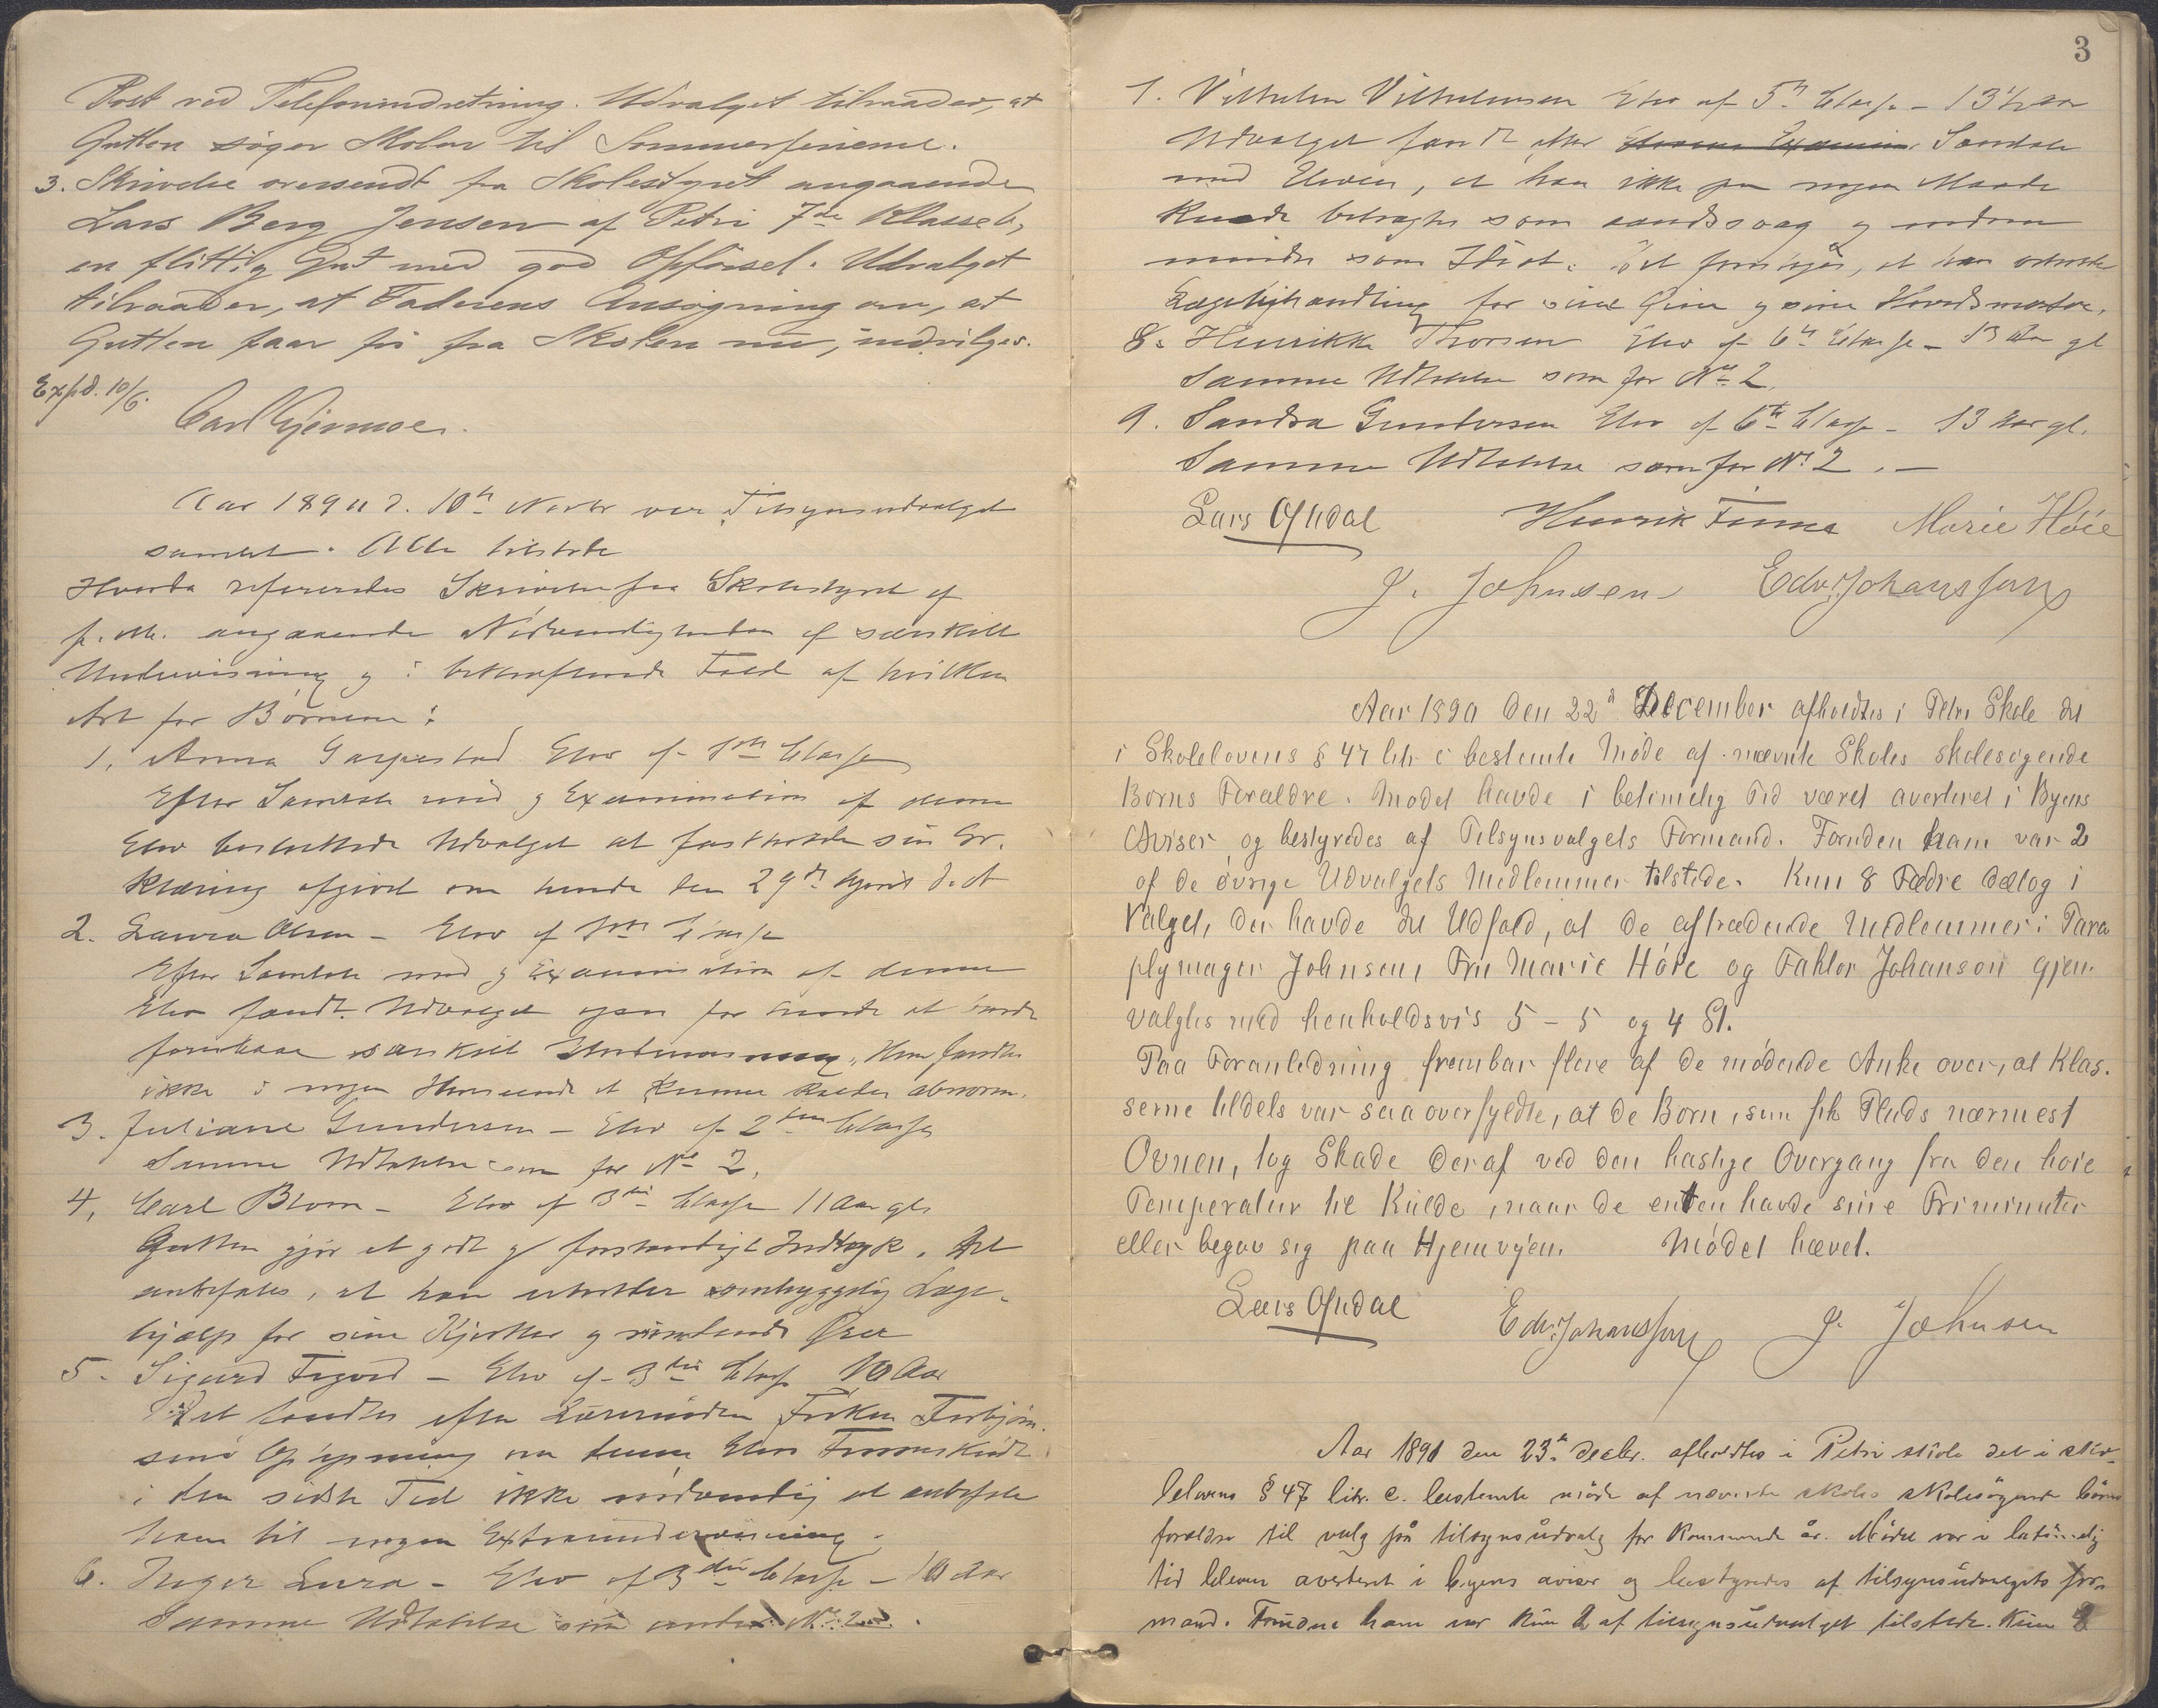 Post ved Telefonindretning. Udvalget tilraader, at
Gutten søger Skolen til Sommerferierne.
3. Skrivelse oversendt fra Skolestyret angaaende
Lars Berg Jensen af Petri 7de Klasse b,
en flittig Gut med god Opførsel. Udvalget
tilraader, at Faderens Ansøgning om, at
Gutten faar fri fra Skolen nu, indvilges.
Expd. 10/6.
Carl Gjermoe.
Aar 1890 d. 10de Novbr var Tilsynsudvalget
samlet. Alle tilstede
Hvorda refereredes Skrivelse fra Skolestyret af
f. M. angaaende Nødvendigheden af særskilt
Undervisning og i bekræftende Fald af hvilken
Art for Børnene:
1. Anna Elev af 1ste Classe
Efter Samtale med og Examination af denne
Elev besluttede Udvalget at fastholde sin Er-
klæring afgivet om hende den 29de April d. A
2. Laura Olsen - Elev af 1ste Classe
Efter Samtale med og Examination af denne
Elev fandt Udvalget for hende at burde
særskilt Undervisning. Hun fandtes
ikke i nogen Henseende at kunne kaldes abnorm.
3. Juliane Gundersen - Elev af 2den Classe
Samme Udtalelse som for No 2.
4. Carl Blom - Elev af 3die Classe 11 Aar gl.
Gutten gjør et godt og forstandigt Indtryk. Det
anbefales, at han erholder omhyggelig Læge-
hjælp for sine Kjertler og rindende Øren
5. Sigurd - Elev af 3die Classe 10 Aar
Det fandtes efter Lærerinden Frøken Torbjørn-
sens Opgivning om denne Elevs Fremskridt
i den sidste Tid ikke nødvendig at anbefale
ham til nogen Extraundervisning.
6. Inger Lura - Elev af 3die Classe - 10 Aar
Samme Udtalelse som under No 2.
3
7. Vilhelm Vilhelmsen Elev af 5te Classe - 13½ Aar
Udvalget fandt efter Elevens Examin. Samtale
med Eleven, at han ikke paa nogen Maade
kunde betragtes som aandssvag og endnu
mindre som Idiot. Det foreslaaes, at han erholder
Lægebehandling for sine Øine og sine Hovedsmerter.
8. Henrikke Thorsen Elev af 6te Classe - 13 Aar gl
Samme Udtalelse som for No 2.
9. Sandra Gundersen Elev af 6te Classe - 13 Aar gl.
Samme Udtalelse som for No 2. -
Lars Ofndal Henrik Finne Marie Høie
J. Johnsen Edv. Johansson
Aar 1890 den 22de December afholdtes i Petri Skole det
i Skolelovens § 47 litr c bestemte Møde af nævnte Skoles skolesøgende
Børns Forældre. Mødet havde i betimelig Tid været averteret i Byens
Aviser og bestyredes af Tilsynsvalgets Formand. Foruden ham var 2
af de øvrige Udvalgets Medlemmer tilstede. Kun 8 Fædre deltog i
Valget, der havde det Udfald, at de aftrædende Medlemmer: Para
plymager Johnsen, Fru Marie Høie og Faktor Johanson gjen-
valgtes med henholdsvis 5 - 5 og 4 St.
Paa Foranledning frembar flere af de mødende Anke over, at Klas-
serne tildels var saa overfyldte, at de Børn, som fik Plads nærmest
Ovnen, tog Skade deraf ved den hastige Overgang fra den høie
Temperatur til Kulde, naar de enten havde sine Friminuter
eller begav sig paa Hjemveien. Mødet hævet.
Lars Ofndal Edv. Johansson J. Johnsen
Aar 1891 den 23de decbr. afholdtes i Petri skole det i sko-
lelovens § 47 litr. c. bestemte møde af nævnte skoles skolesøgende børns
forældre til valg på tilsynsudvalg for kommende år. Mødet var i betimelig
tid bleven averteret i byens aviser og bestyredes af tilsynsudvalgets for-
mand. Foruden ham var kun 2 af tilsynsudvalget tilstede. Kun 8